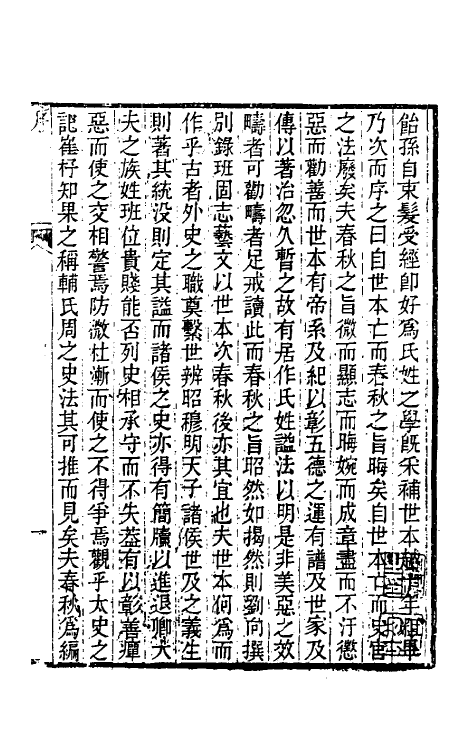 飴孫自束髮受經卽好爲氏姓之學旣釆補世本
乃次而序之曰自世本亡而春秋之旨晦矣自世本亡而史官
之法廢矣夫春秋之旨微而顯志而晦婉而成章盡而不汙懲
惡而勸善而世本有帝系及紀以彰五德之運有譜及世家及
傳以著治忽久暫之故有居作氏姓謚法以明是非美惡之效
疇者可勸疇者足戒讀此而春秋之旨昭然如揭然則劉向撰
別錄班固志藝文以世本次春秋後亦其宜也夫世本何爲而
作乎古者外史之職奠繫世辨昭穆明天子諸侯世及之義生
則著其統没則定其謚而諸侯之史亦得有簡牘以進退卿大
夫之族姓班位貴賤能否列史相承守而不失葢有以彰善癉
惡而使之交相警焉防微杜漸而使之不得爭焉觀乎太史之
記崔杼知果之稱輔氏周之史法其可推而見矣夫春秋爲編
序
一